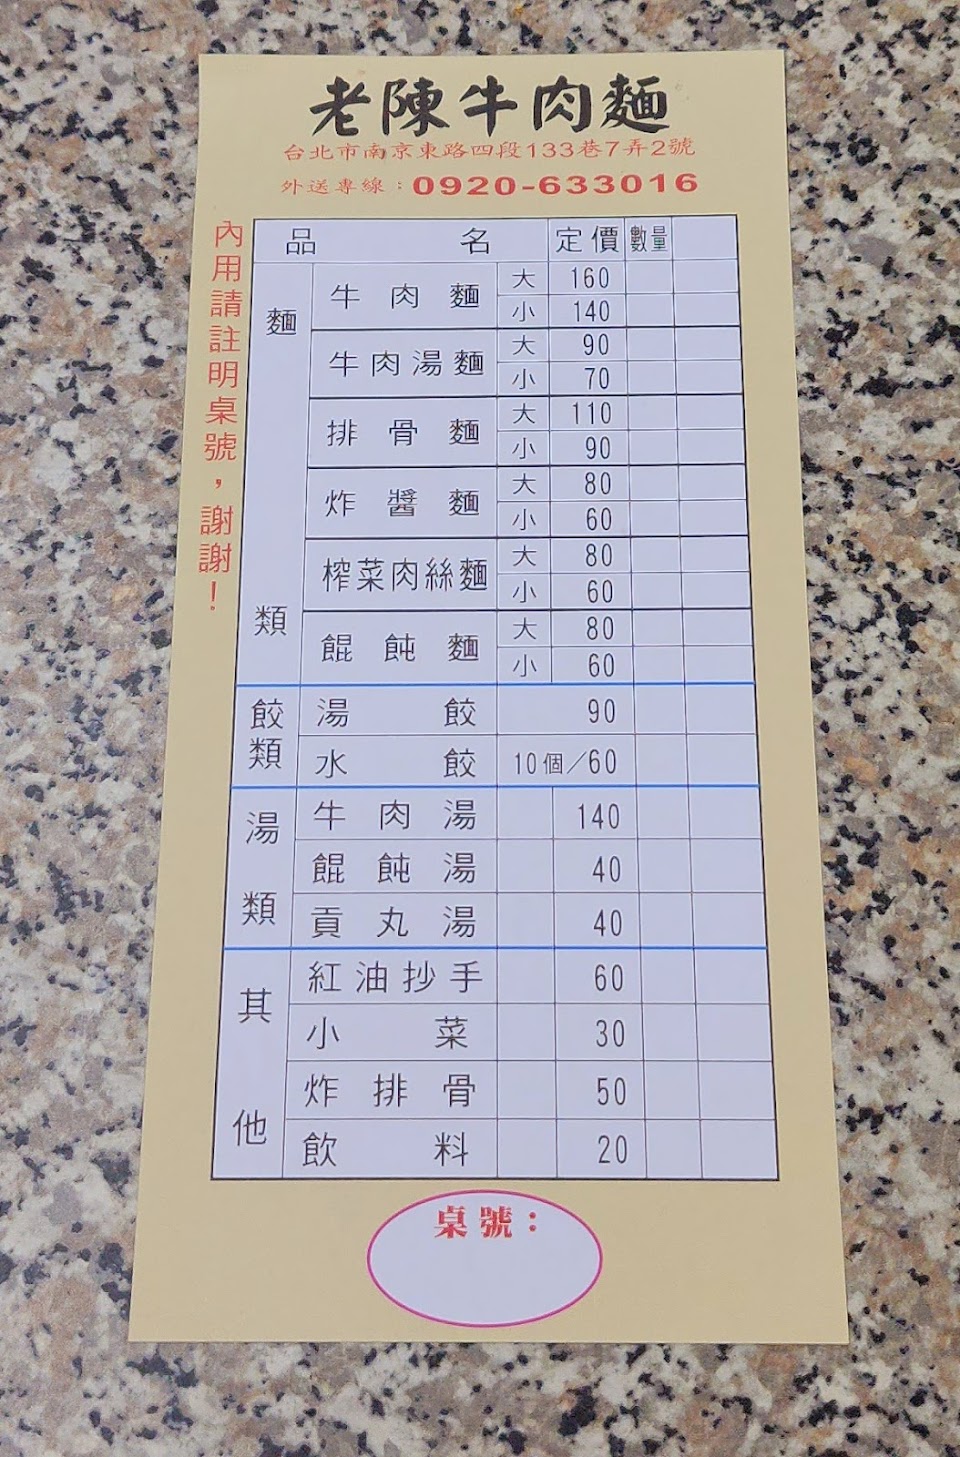 老陳牛肉麵
台北市南京東路四段133巷7弄2號
外送專線：0920-633016
內用請註明桌號，謝謝！
品名 定價 數量
麵類
牛肉麵 大 160
小 140
牛肉湯麵 大 90
小 70
排骨麵 大 110
小 90
炸醬麵 大 80
小 60
榨菜肉絲麵 大 80
小 60
餛飩麵 大 80
小 60
餃類
湯餃 90
水餃 10個／60
湯類
牛肉湯 140
餛飩湯 40
貢丸湯 40
其他
紅油抄手 60
小菜 30
炸排骨 50
飲料 20
桌號：